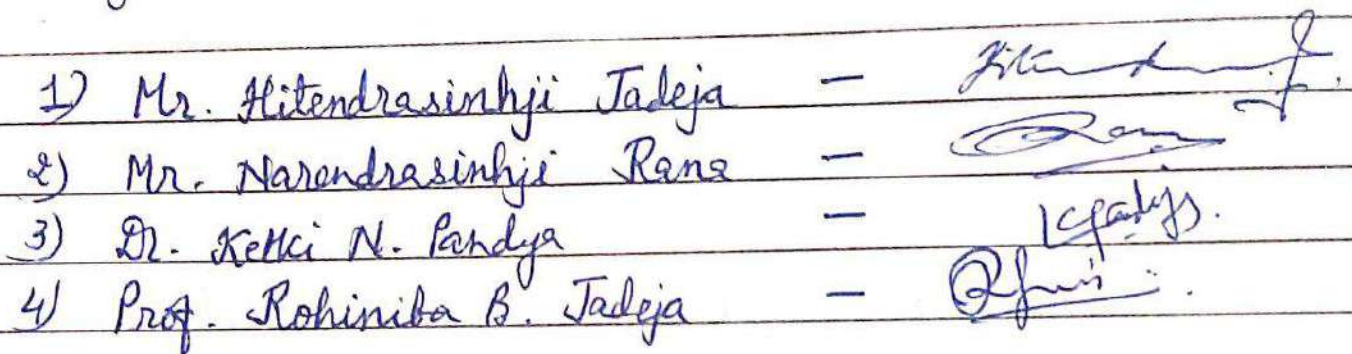 1) Mr. Hitendrasinhji Jadeja -
2) Mr. Narendrasinhji Rana -
3) Dr. Ketki N. Pandya -
4) Prof. Rohiniba B. Jadeja -